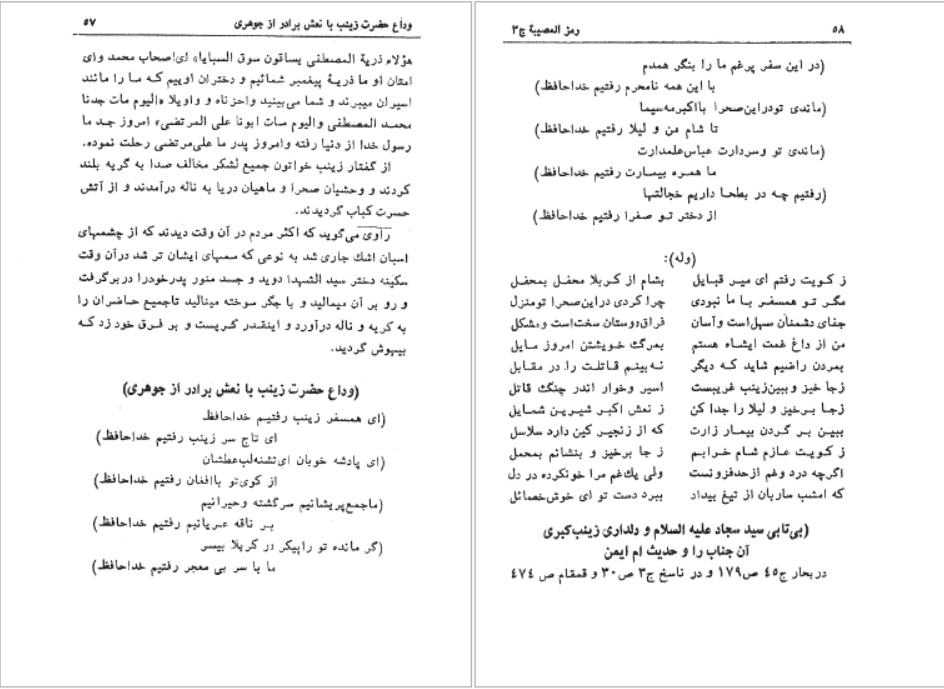 وداع حضرت زینب با نعش برادر از جوهری ۵۷
هؤلاء ذریة المصطفی یساقون سوق السبایا» ای‌اصحاب محمد وای
امتان او ما ذریهٔ پیغمبر شمائیم و دختران اوییم که ما را مانند
اسیران میبرند و شما می‌بینید واحزناه و واویلا «الیوم مات جدنا
محمد المصطفی والیوم مات ابونا علی المرتضی» امروز جد ما
رسول خدا از دنیا رفته وامروز پدر ما علی‌مرتضی رحلت نموده.
از گفتار زینب خواتون جمیع لشکر مخالف صدا به گریه بلند
کردند و وحشیان صحرا و ماهیان دریا به ناله درآمدند و از آتش
حسرت کباب گردیدند.
راوی می‌گوید که اکثر مردم در آن وقت دیدند که از چشمهای
اسبان اشك جاری شد به نوعی که سمهای ایشان تر شد درآن وقت
سکینه دختر سید الشهدا دوید و جسد منور پدرخودرا دربرگرفت
و رو بر آن میمالید و با جگر سوخته مینالید تاجمیع حاضران را
به گریه و ناله درآورد و اینقدر گریست و بر فرق خود زد که
بیهوش گردید.
(وداع حضرت زینب با نعش برادر از جوهری)
(ای همسفر زینب رفتیم خداحافظ
ای تاج سر زینب رفتیم خداحافظ)
(ای پادشه خوبان ای‌تشنه‌لب‌عطشان
از کوی‌تو باافغان رفتیم خداحافظ)
(ماجمع‌پریشانیم سرگشته وحیرانیم
بر ناقه عریانیم رفتیم خداحافظ)
(گر مانده تو راپیکر در کربلا بیسر
ما با سر بی معجر رفتیم خداحافظ)
۵۸ رمز المصیبة ج۳
(در این سفر پرغم ما را بنگر همدم
با این همه نامحرم رفتیم خداحافظ)
(ماندی تودراین‌صحرا بااکبرمه‌سیما
تا شام من و لیلا رفتیم خداحافظ)
(ماندی تو وسردارت عباس‌علمدارت
ما همره بیمارت رفتیم خداحافظ)
(رفتیم چه در بطحا داریم خجالتها
از دختر تو صغرا رفتیم خداحافظ)
(وله):
ز کویت رفتم ای میر قبایل بشام از کربلا محفل بمحفل
مگر تو همسفر با ما نبودی چرا کردی دراین‌صحرا تومنزل
جفای دشمنان سهل‌است وآسان فراق‌دوستان سخت‌است ومشکل
من از داغ غمت ایشاه هستم بمرگ خویشتن امروز مایل
بمردن راضیم شاید که دیگر نه‌بینم قاتلت را در مقابل
زجا خیز و ببین‌زینب غریبست اسیر وخوار اندر چنگ قاتل
زجا برخیز و لیلا را جدا کن ز نعش اکبر شیرین شمایل
ببین بر گردن بیمار زارت که از زنجیر کین دارد سلاسل
ز کویت عازم شام خرابم ز جا برخیز و بنشانم بمحمل
اگرچه درد وغم ازحدفزونست ولی یك‌غم مرا خونکرده در دل
که امشب ساربان از تیغ بیداد ببرد دست تو ای خوش‌خصائل
(بی‌تابی سید سجاد علیه السلام و دلداری زینب‌کبری
آن جناب را و حدیث ام ایمن
در بحار ج۴۵ ص۱۷۹ و در ناسخ ج۳ ص۳۰ و قمقام ص ۴۷۴